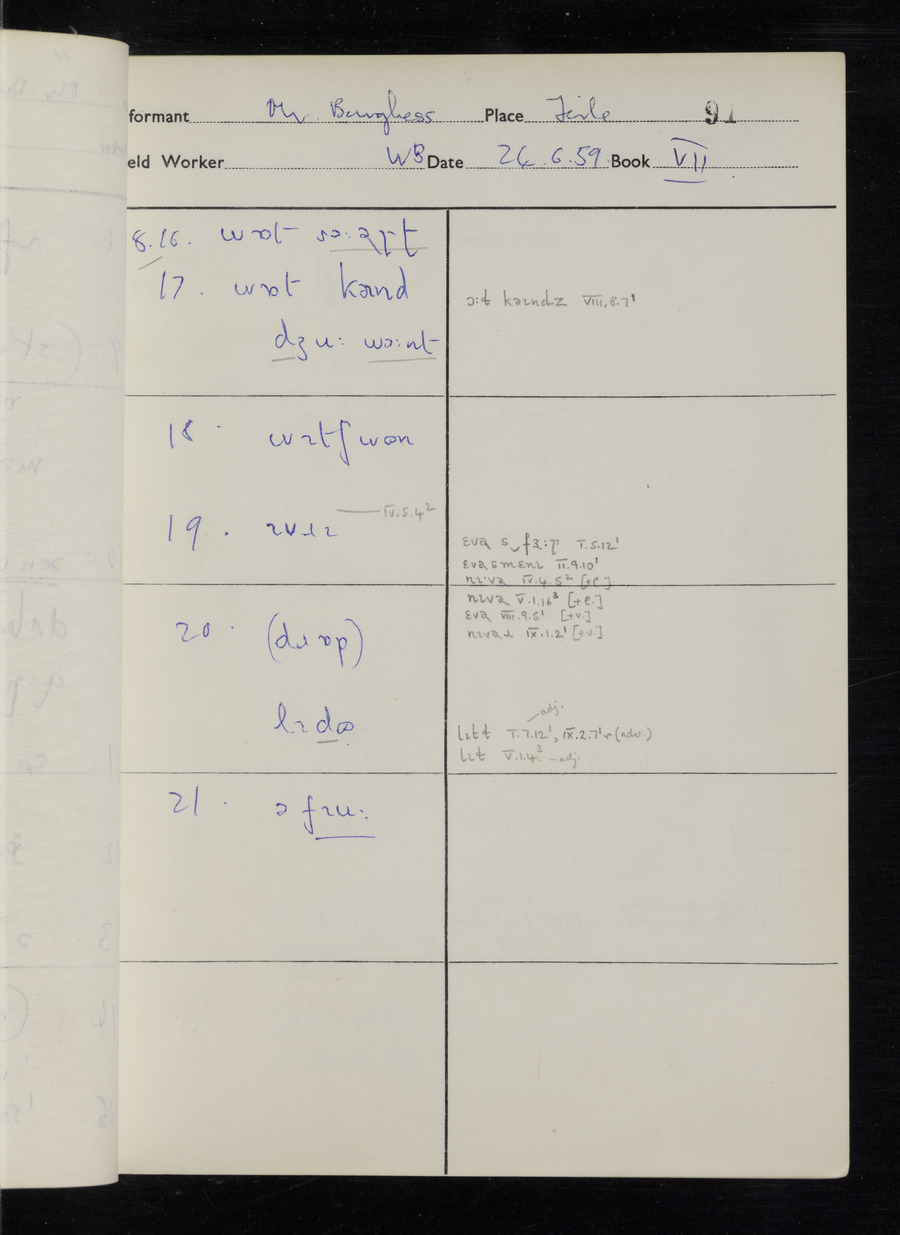 formant Mr. Burghess Place Firle 91
eld Worker WB Date 26.6.59 Book VII
8.16. wɒt sɔ:əɹt
17. wɒt kəɪnd
dʒu: wɔ:nt
ɔ:ɫ kəɪndz VIII.8.7¹
18. wɪtʃ wɒn
19. ɪvɹɪ IV.5.4²
ɛvə s fɜ:ɹ I.5.12¹
ɛvəsmɛnɪ II.9.10¹
nɪ:və IV.4.5² [+c.]
nɪvə V.1.16³ [+c.]
ɛvə VIII.9.5¹ [+v.]
nɪvəɹ IX.1.2¹ [+v.]
20. (dɹɒp)
lɪdɵ
adj.
lɪtɫ I.7.12¹, IX.2.7¹ (adv.)
lɪt V.1.4³ – adj.
21. ə fɪu: